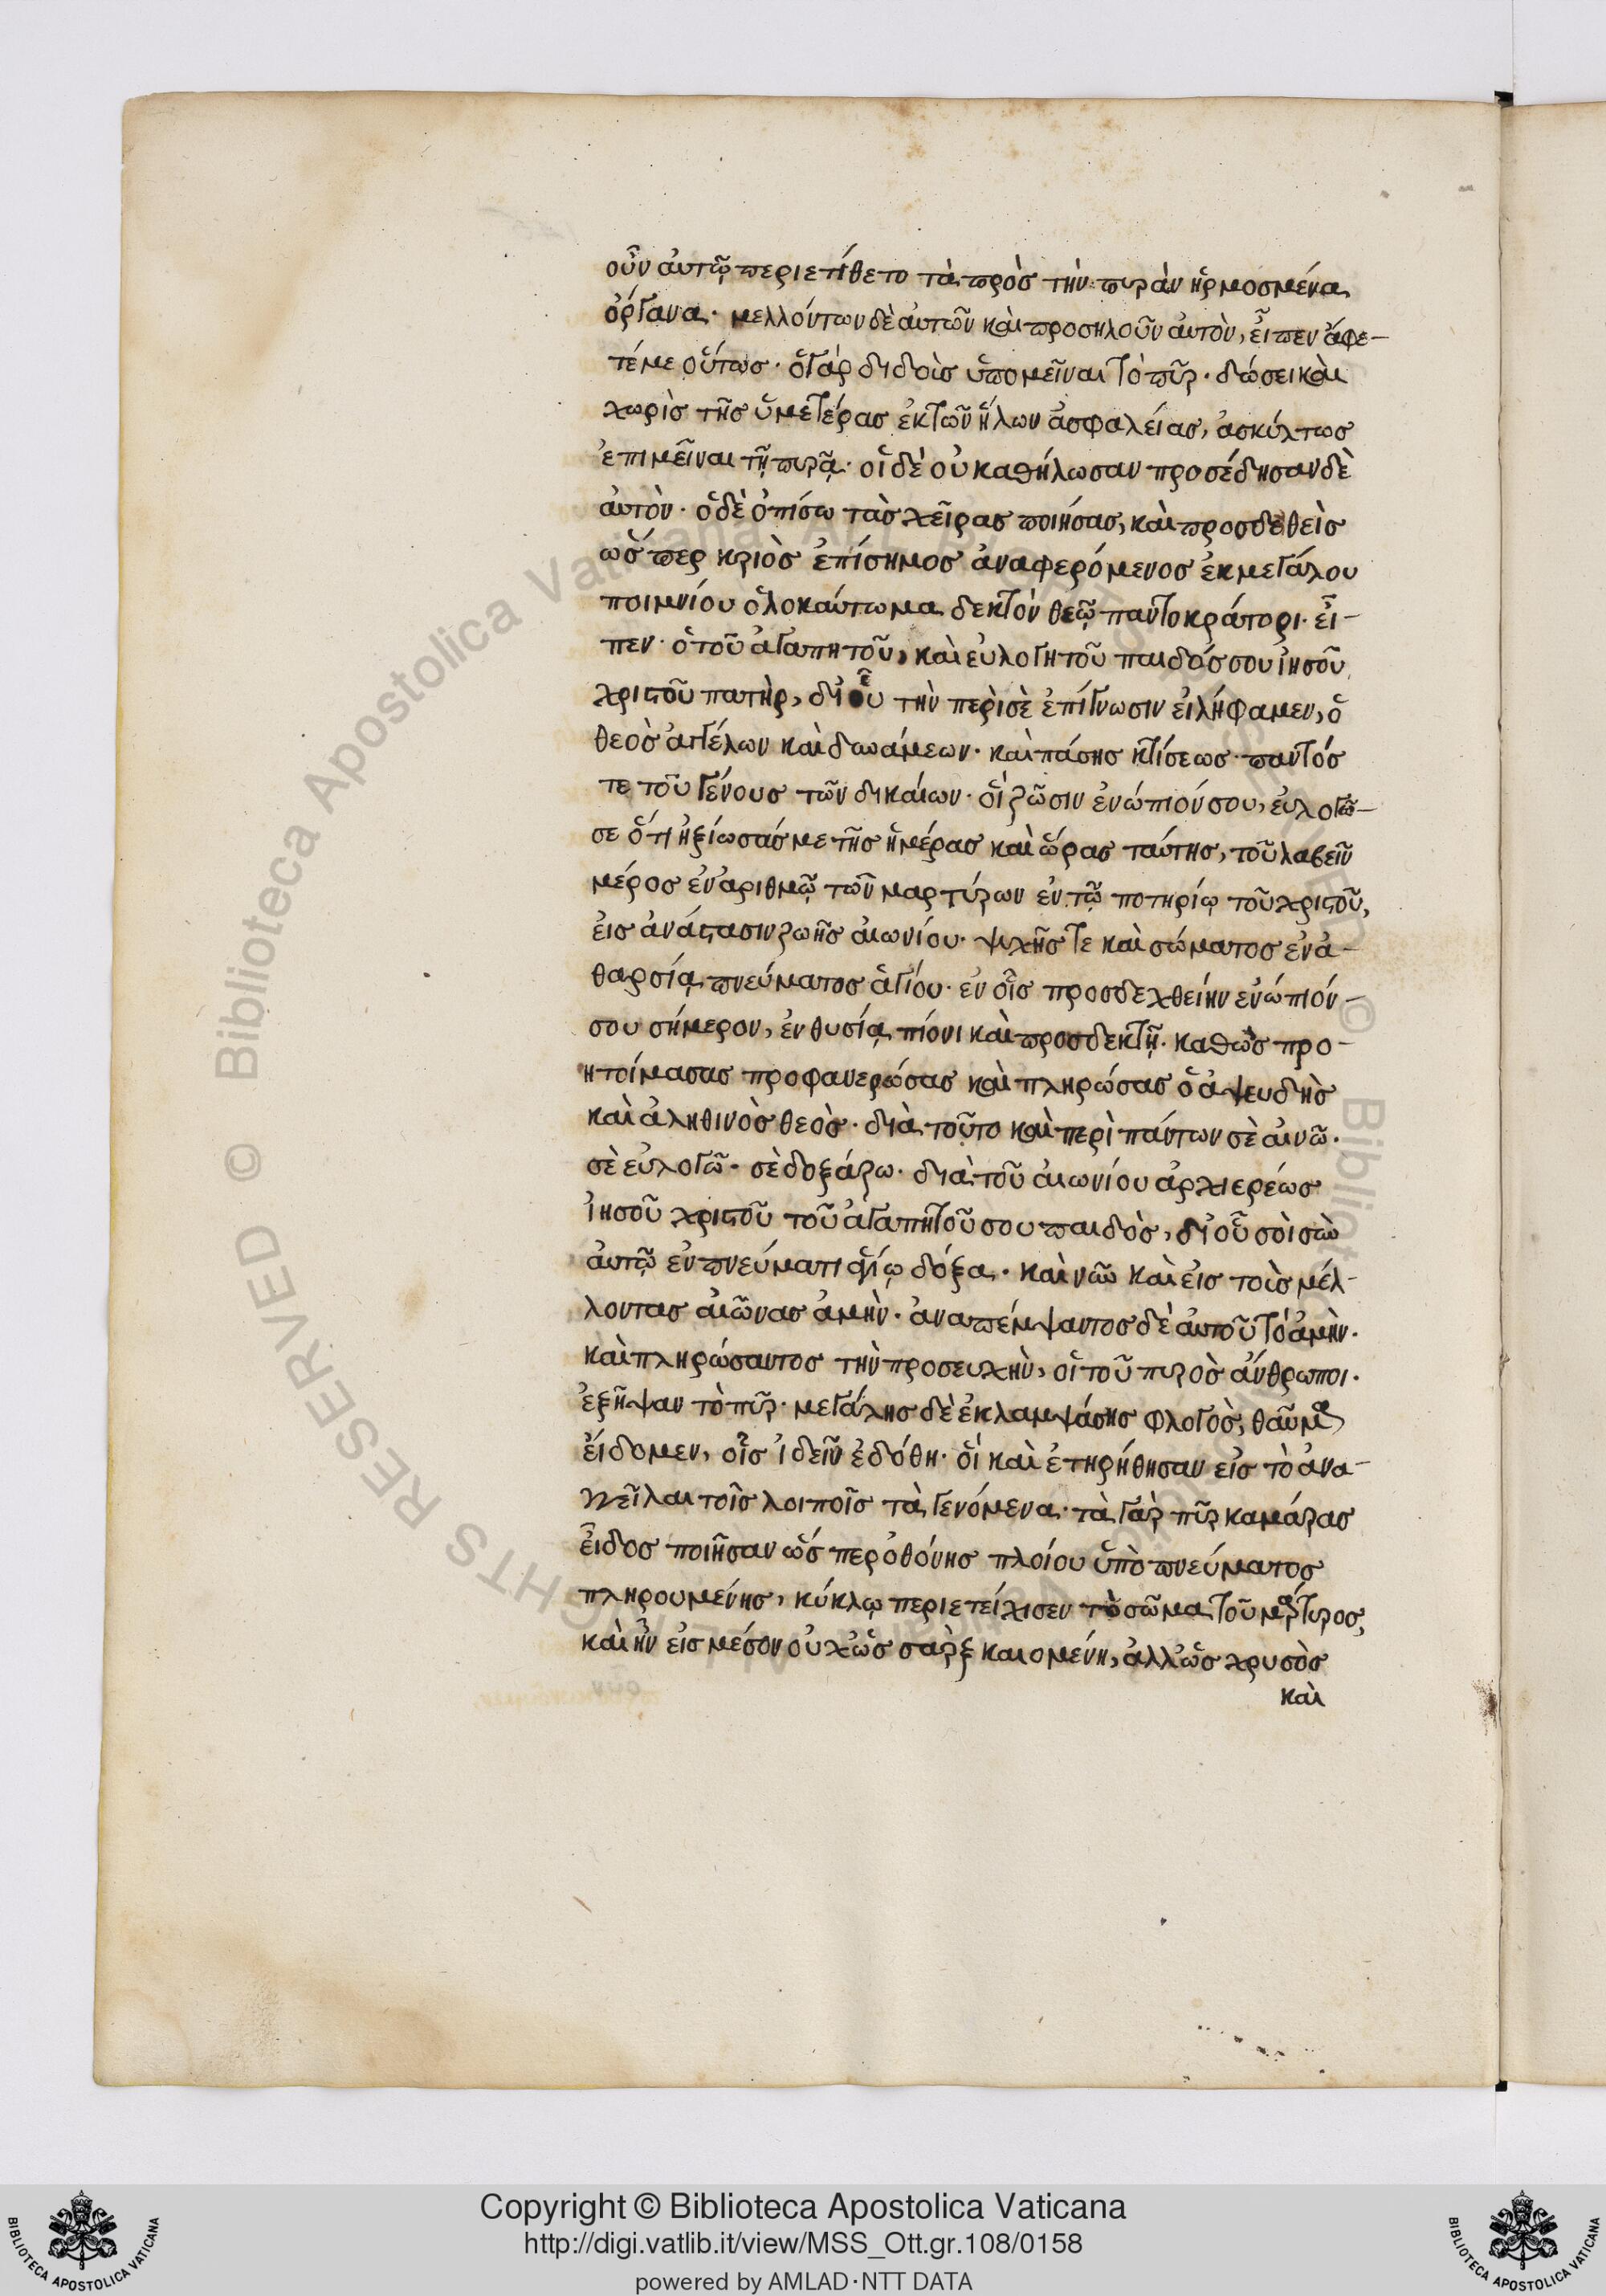 οὖν αὐτῷ περιετίθετο τὰ πρὸς τὴν πυρὰν ἡρμοσμένα
ὄργανα· μελλόντων δὲ αὐτῶν καὶ προσηλοῦν αὐτὸν, εἶπεν ἄφε-
τέ με οὕτως· ὁ γάρ διδοὶς ὑπομεῖναι τὸ πῦρ· δώσει καὶ
χωρὶς τῆς ὑμετέρας ἐκ τῶν ἥλων ἀσφαλείας, ἀσκύλτως
ἐπιμεῖναι τῇ πυρᾷ· οἱ δὲ οὐ καθήλωσαν προσέδησαν δὲ
αὐτὸν· ὁ δὲ ὀπίσω τὰς χεῖρας ποιήσας, καὶ προσδεθεὶς
ὥσπερ κριὸς ἐπίσημος ἀναφερόμενος ἐκ μεγάλου
ποιμνίου ὁλοκαύτωμα δεκτὸν θεῷ παντοκράτορι· εἶ-
πεν· ὁ τοῦ ἀγαπητοῦ, καὶ εὐλογητοῦ παιδός σου ἰησοῦ
χριστοῦ πατὴρ, δι' οὗ τὴν περὶ σὲ ἐπίγνωσιν εἰλήφαμεν, ὁ
θεὸς ἀγγέλων καὶ δυνάμεων· καὶ πάσης κτίσεως· παντός
τε τοῦ γένους τῶν δικαίων· οἳ ζῶσιν ἐνώπιόν σου, εὐλογῶ-
σε ὅτι ἠξίωσάς με τῆς ἡμέρας καὶ ὥρας ταύτης, τοῦ λαβεῖν
μέρος ἐν ἀριθμῷ τῶν μαρτύρων ἐν τῷ ποτηρίῳ τοῦ χριστοῦ,
εἰς ἀνάστασιν ζωῆς αἰωνίου· ψυχῆς τε καὶ σώματος ἐν ἀ-
θαρσίᾳ πνεύματος ἁγίου· ἐν οἷς προσδεχθείην ἐνώπιόν-
σου σήμερον, ἐν θυσίᾳ πίονι καὶ προσδεκτῇ· καθὼς προ-
ητοίμασας προφανερώσας καὶ πληρώσας ὁ ἀψευδὴς
καὶ ἀληθινὸς θεὸς· διὰ τοῦτο καὶ περὶ πάντων σὲ αἰνῶ·
σὲ εὐλογῶ· σὲ δοξάζω· διὰ τοῦ αἰωνίου ἀρχιερέως
ἰησοῦ χριστοῦ τοῦ ἀγαπητοῦ σου παιδὸς, δι' οὗ σοὶ σὺν
αὐτῷ ἐν πνεύματι ἁγίῳ δόξα· καὶ νῦν καὶ εἰς τοὺς μέλ-
λοντας αἰῶνας ἀμὴν· ἀναπέμψαντος δὲ αὐτοῦ τὸ ἀμὴν·
καὶ πληρώσαντος τὴν προσευχὴν, οἱ τοῦ πυρὸς ἄνθρωποι·
ἐξῆψαν τὸ πῦρ· μεγάλης δὲ ἐκλαμψάσης φλογὸς, θαῦμα
εἴδομεν, οἷς ἰδεῖν ἐδόθη· οἳ καὶ ἐτηρήθησαν εἰς τὸ ἀνα-
γγεῖλαι τοῖς λοιποῖς τὰ γενόμενα· τὰ γὰρ πῦρ καμάρας
εἶδος ποιῆσαν ὥσπερ ὀθόνης πλοίου ὑπὸ πνεύματος
πληρουμένης, κύκλῳ περιετείχισεν τὸ σῶμα τοῦ μάρτυρος,
καὶ ἦν εἰς μέσον οὐχ ὡς σὰρξ καιομένη, ἀλλ' ὡς χρυσὸς
καὶ
Copyright © Biblioteca Apostolica Vaticana
http://digi.vatlib.it/view/MSS_Ott.gr.108/0158
powered by AMLAD·NTT DATA
BIBLIOTECA APOSTOLICA VATICANA
BIBLIOTECA APOSTOLICA VATICANA